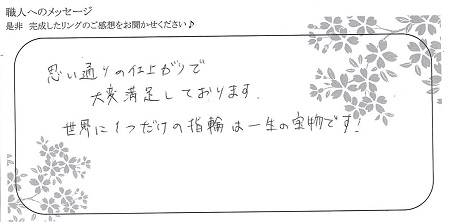 職人へのメッセージ
是非 完成したリングのご感想をお聞かせください♪
思い通りの仕上がりで
大変満足しております.
世界に1つだけの指輪は一生の宝物です!